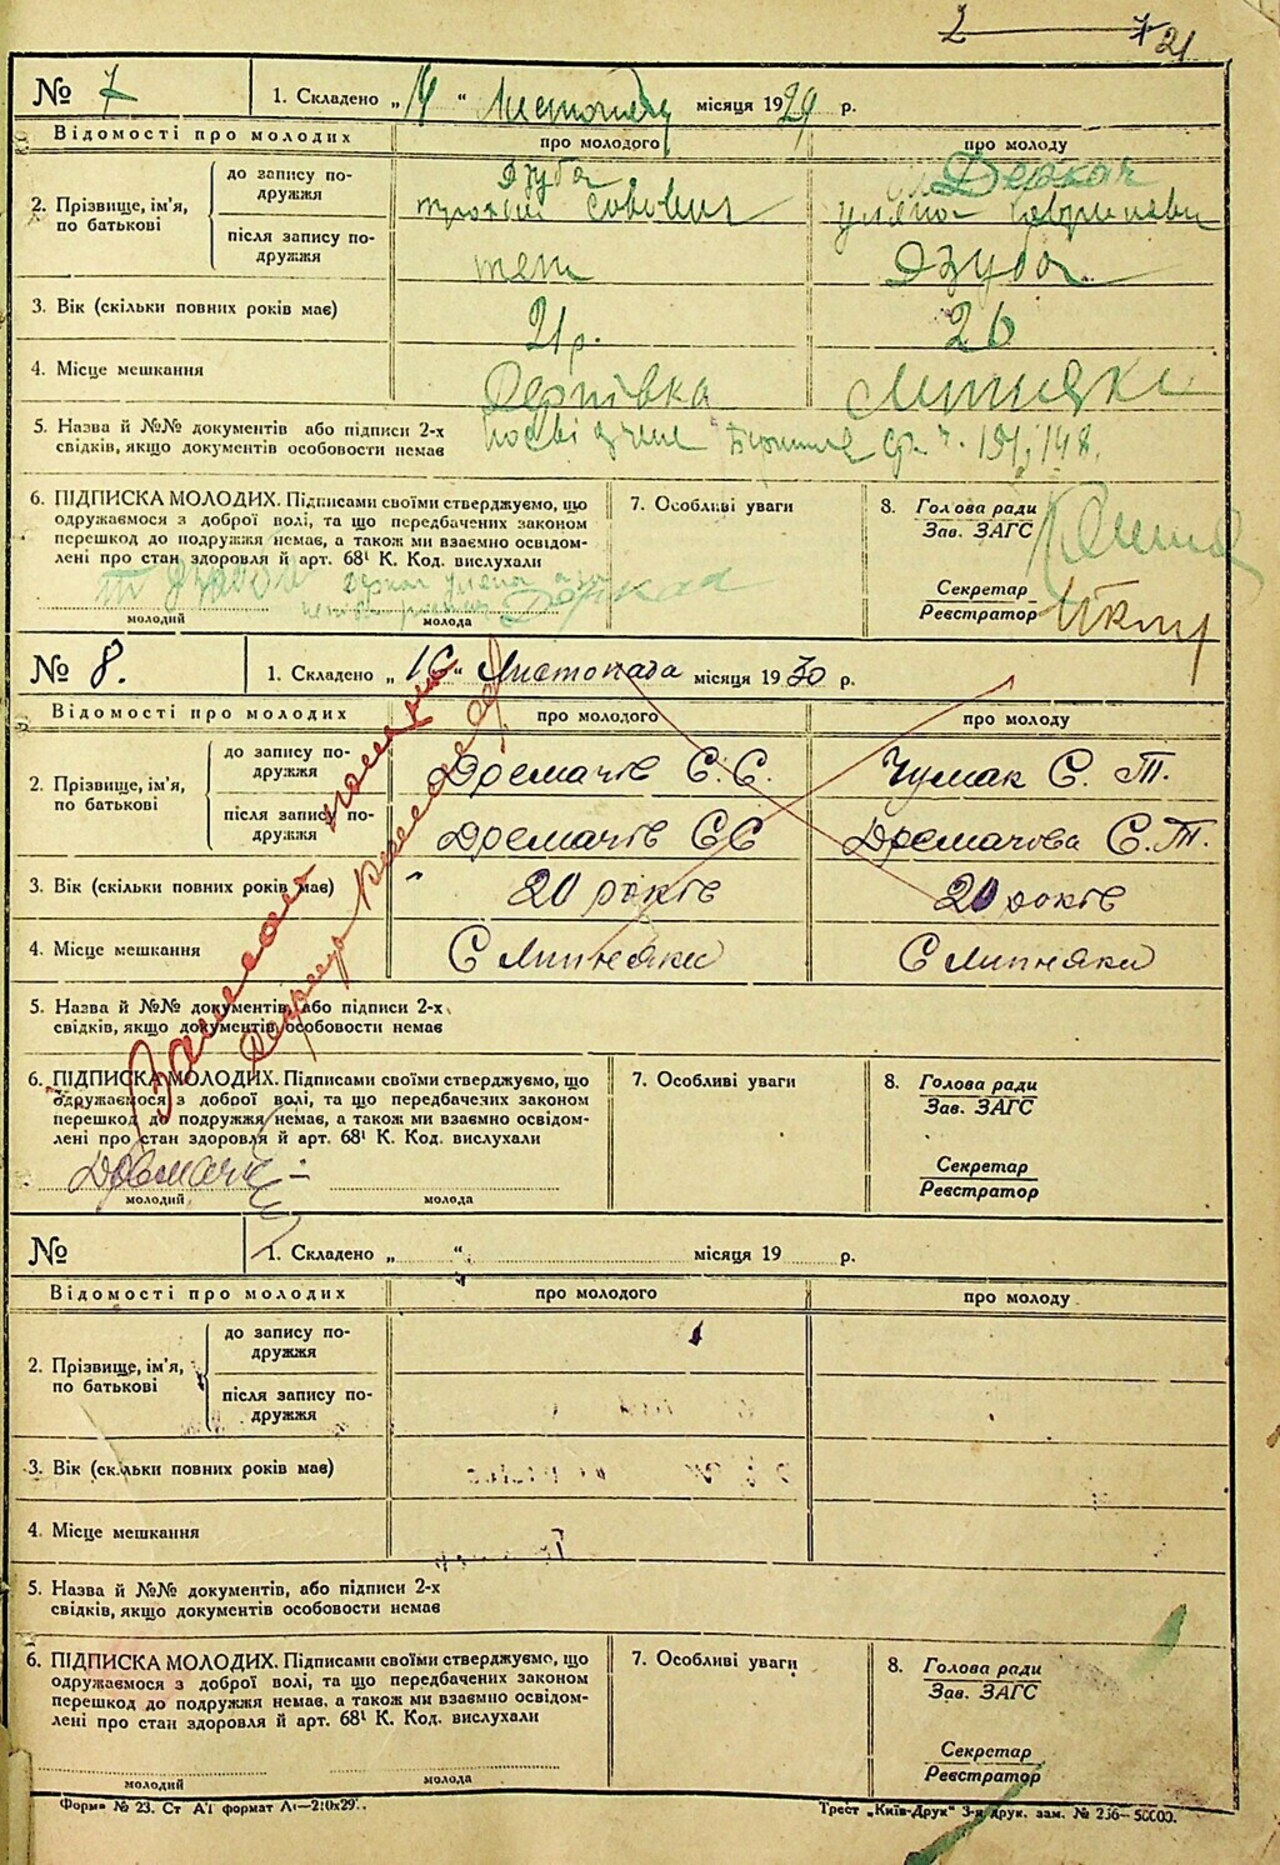 2 — 7 21
№ 7 1. Складено „ 14 “ Листопада місяця 1929 р.
Відомості про молодих про молодого про молоду
2. Прізвище, ім'я, по батькові
до запису по-
дружжя
Дзуба
Савович
Деркач
Уляна
після запису по-
дружжя
теж
Дзуба
3. Вік (скільки повних років має) 21 р. 26
4. Місце мешкання Липняки
5. Назва й №№ документів або підписи 2-х
свідків, якщо документів особовости немає
посвідчене
6. ПІДПИСКА МОЛОДИХ. Підписами своїми стверджуємо, що
одружаємося з доброї волі, та що передбачених законом
перешкод до подружжя немає, а також ми взаємно освідом-
лені про стан здоровля й арт. 68¹ К. Код. вислухали
Деркач
молодий молода
7. Особливі уваги
8. Голова ради
Зав. ЗАГС
Секретар
Реєстратор
№ 8. 1. Складено „ 16 “ Листопада місяця 1930 р.
Відомості про молодих про молодого про молоду
2. Прізвище, ім'я,
по батькові
до запису по-
дружжя
Дремачів Є. Є. Чумак Є. Т.
після запису по-
дружжя
Дремачів ЄЄ Дремачова Є. Т.
3. Вік (скільки повних років має) 20 років 20 років
4. Місце мешкання С Липняки С Липняки
5. Назва й №№ документів, або підписи 2-х
свідків, якщо документів особовости немає
6. ПІДПИСКА МОЛОДИХ. Підписами своїми стверджуємо, що
одружаємося з доброї волі, та що передбачених законом
перешкод до подружжя немає, а також ми взаємно освідом-
лені про стан здоровля й арт. 68¹ К. Код. вислухали
молодий молода
7. Особливі уваги
8. Голова ради
Зав. ЗАГС
Секретар
Реєстратор
№ 1. Складено „ “ місяця 19 р.
Відомості про молодих про молодого про молоду
2. Прізвище, ім'я,
по батькові
до запису по-
дружжя
після запису по-
дружжя
3. Вік (скільки повних років має)
4. Місце мешкання
5. Назва й №№ документів, або підписи 2-х
свідків, якщо документів особовости немає
6. ПІДПИСКА МОЛОДИХ. Підписами своїми стверджуємо, що
одружаємося з доброї волі, та що передбачених законом
перешкод до подружжя немає, а також ми взаємно освідом-
лені про стан здоровля й арт. 68¹ К. Код. вислухали
молодий молода
7. Особливі уваги
8. Голова ради
Зав. ЗАГС
Секретар
Реєстратор
Форма № 23. Ст формат
Трест „Київ-Друк“ 3-я друк. зам. № 236—50000.